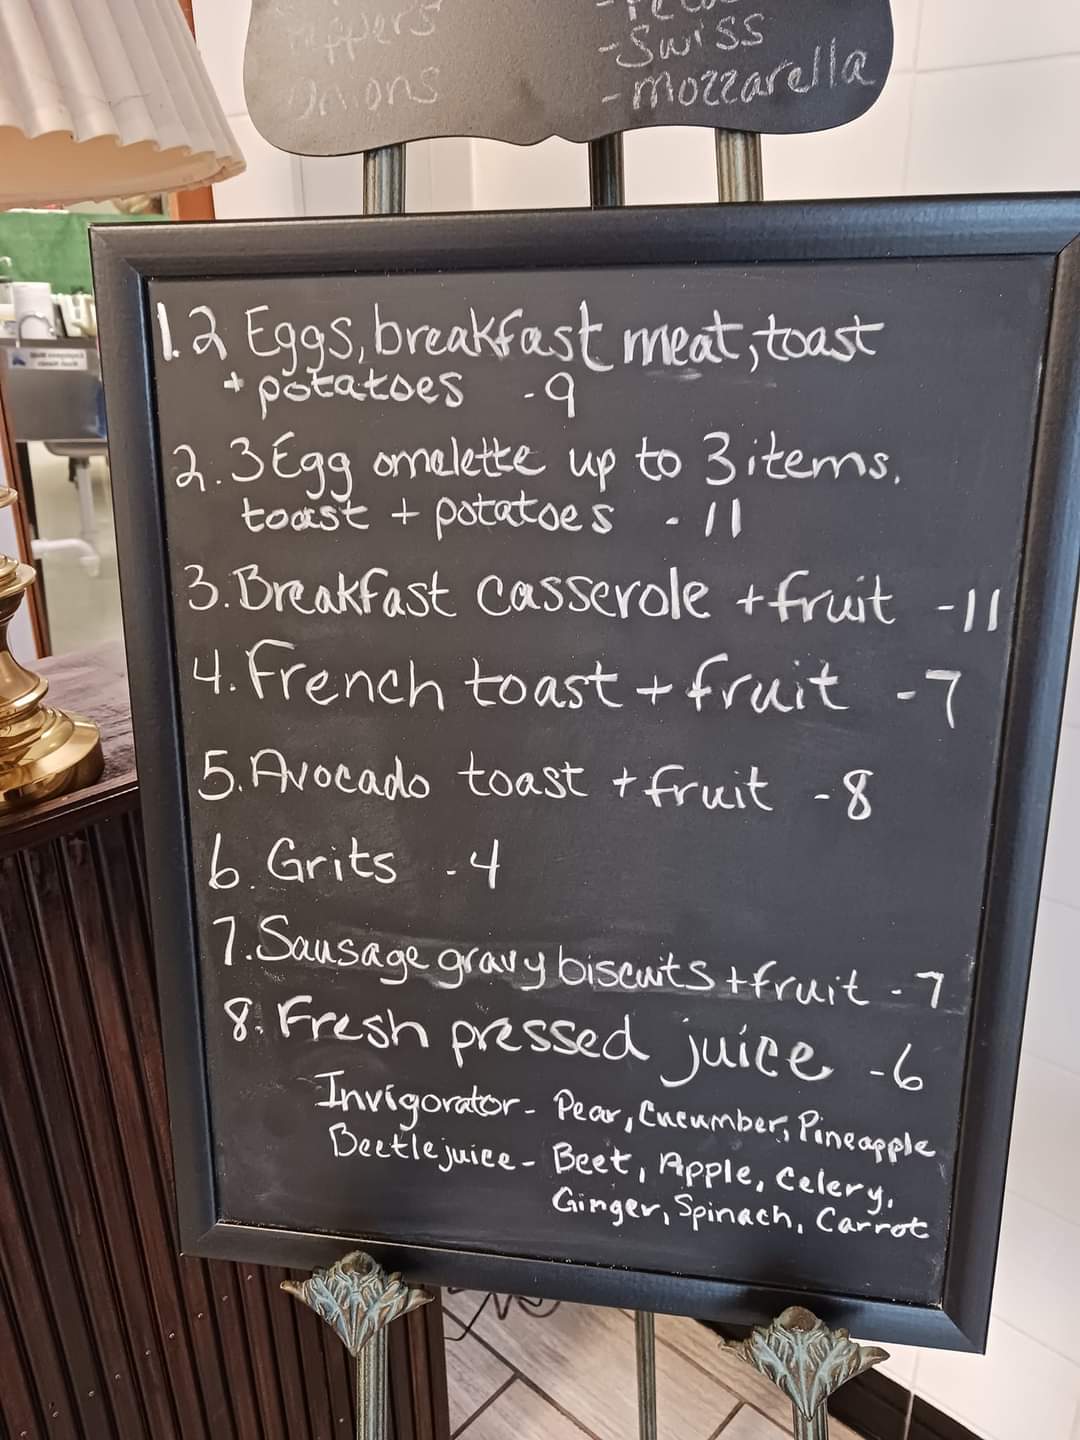 Onions
-Swiss
-Mozzarella
1. 2 Eggs, breakfast meat, toast
+ potatoes - 9
2. 3 Egg omelette up to 3 items.
toast + potatoes - 11
3. Breakfast casserole + fruit - 11
4. French toast + fruit - 7
5. Avocado toast + fruit - 8
6. Grits - 4
7. Sausage gravy biscuits + fruit - 7
8. Fresh pressed juice - 6
Invigorator - Pear, Cucumber, Pineapple
Beetlejuice - Beet, Apple, Celery,
Ginger, Spinach, Carrot